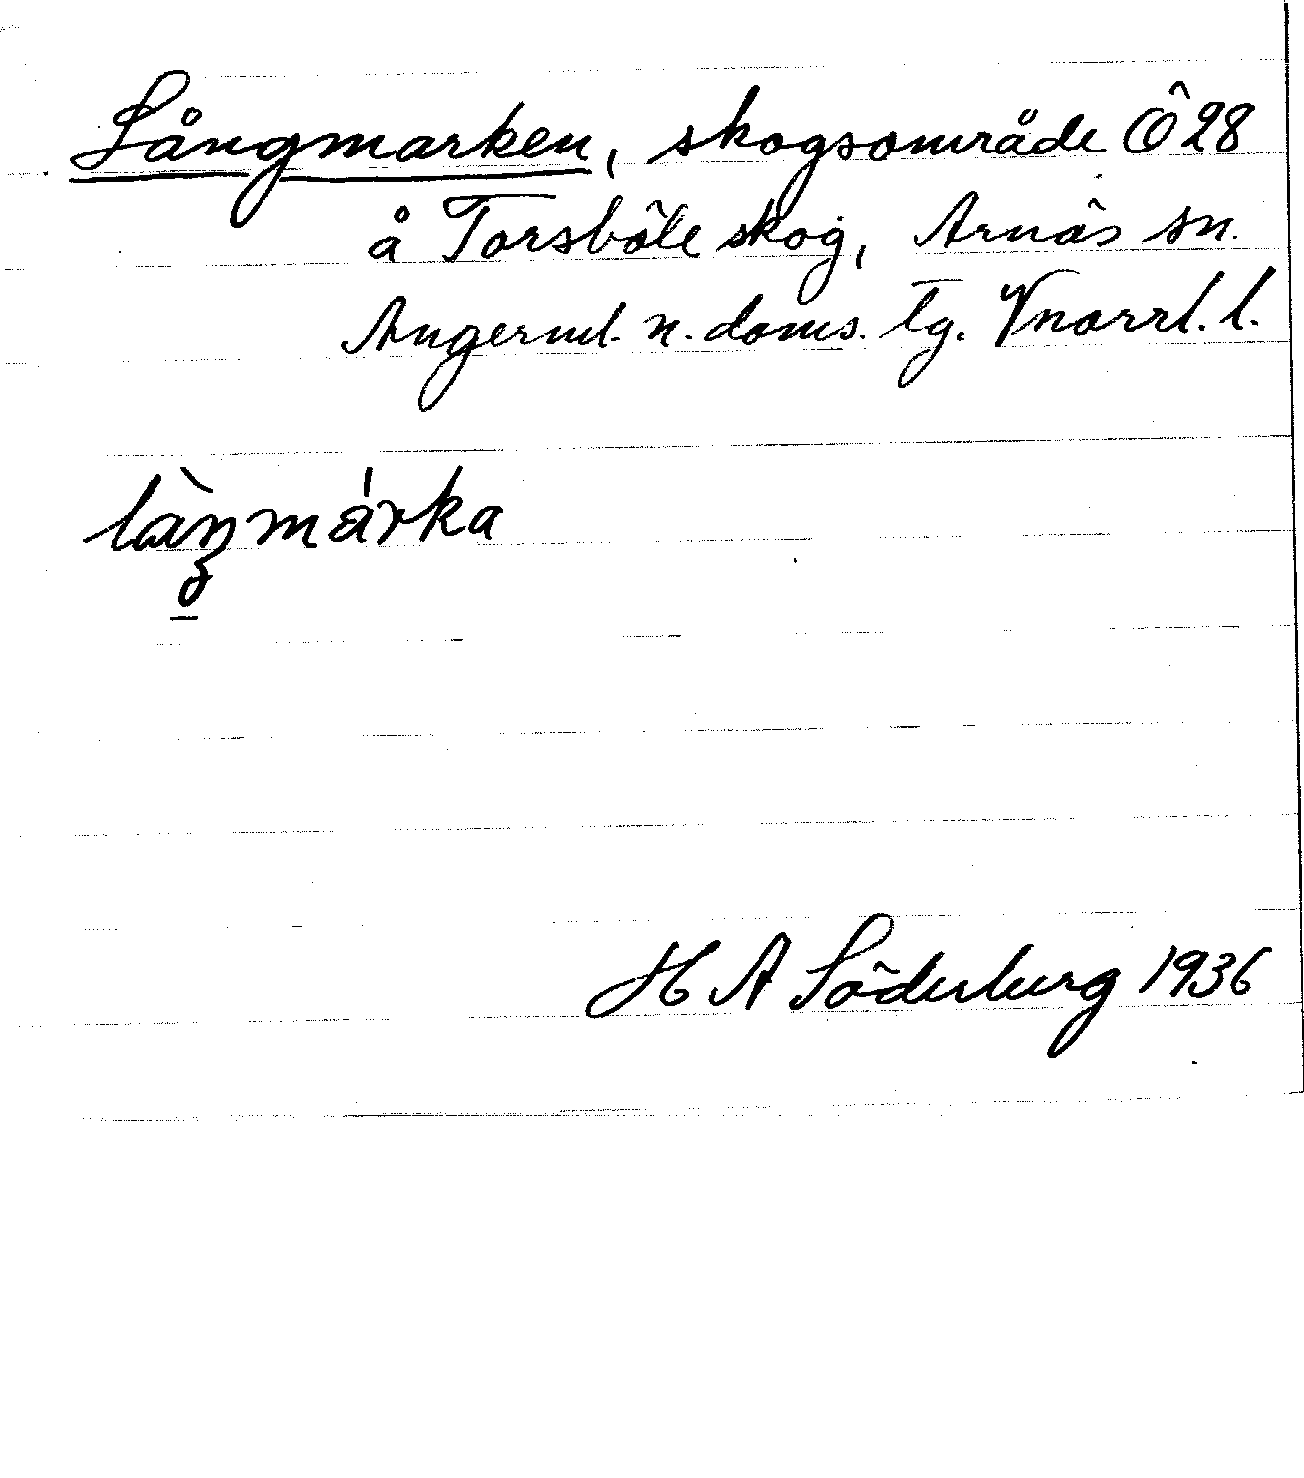 Långmarken, skogsområde Ö28
å Torsböle skog, Arnäs sn.
Ångerml. n. doms. tg. Vnorrl. l.
làŋmárka
H A Söderberg 1936